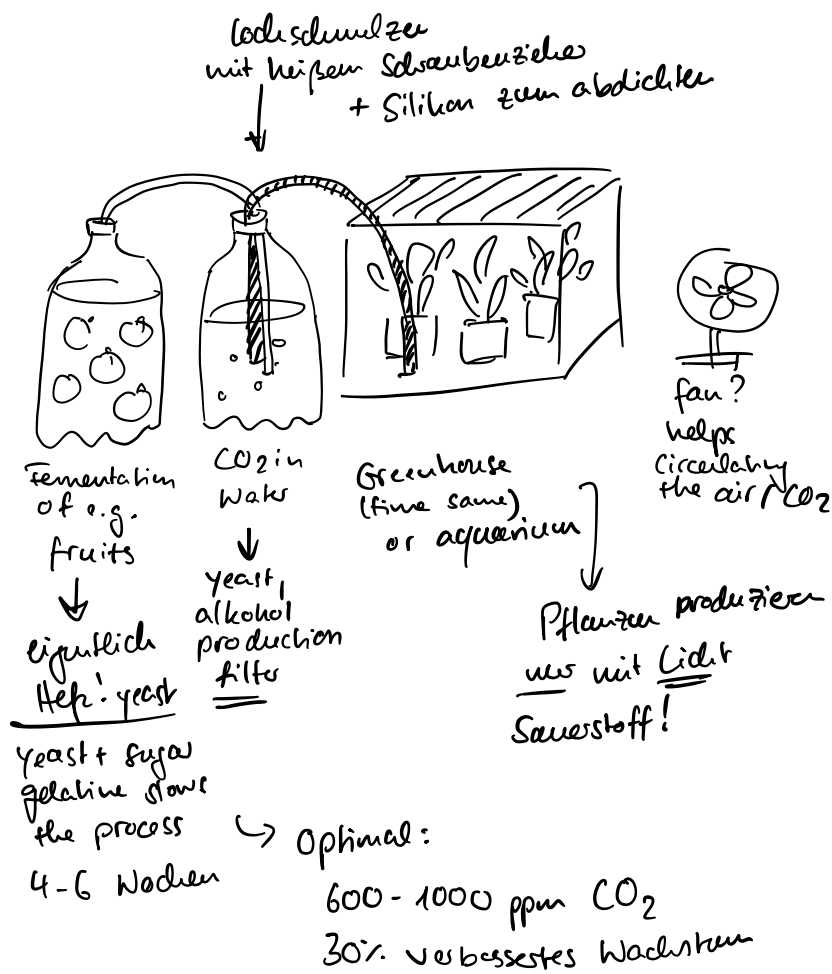 Loch schmelzen
mit heißem Schraubenzieher
+ Silikon zum abdichten
Fermentation
of e.g.
fruits
eigentlich
Hefe! yeast
yeast + sugar
gelatine slows
the process
4-6 Wochen
CO2 in
Water
yeast,
alkohol
production
filter
Greenhouse
(time same)
or aquarium
fan?
helps
circulating
the air / CO2
Pflanzen produzieren
nur mit Licht
Sauerstoff!
Optimal:
600 - 1000 ppm CO2
30% verbessertes Wachstum